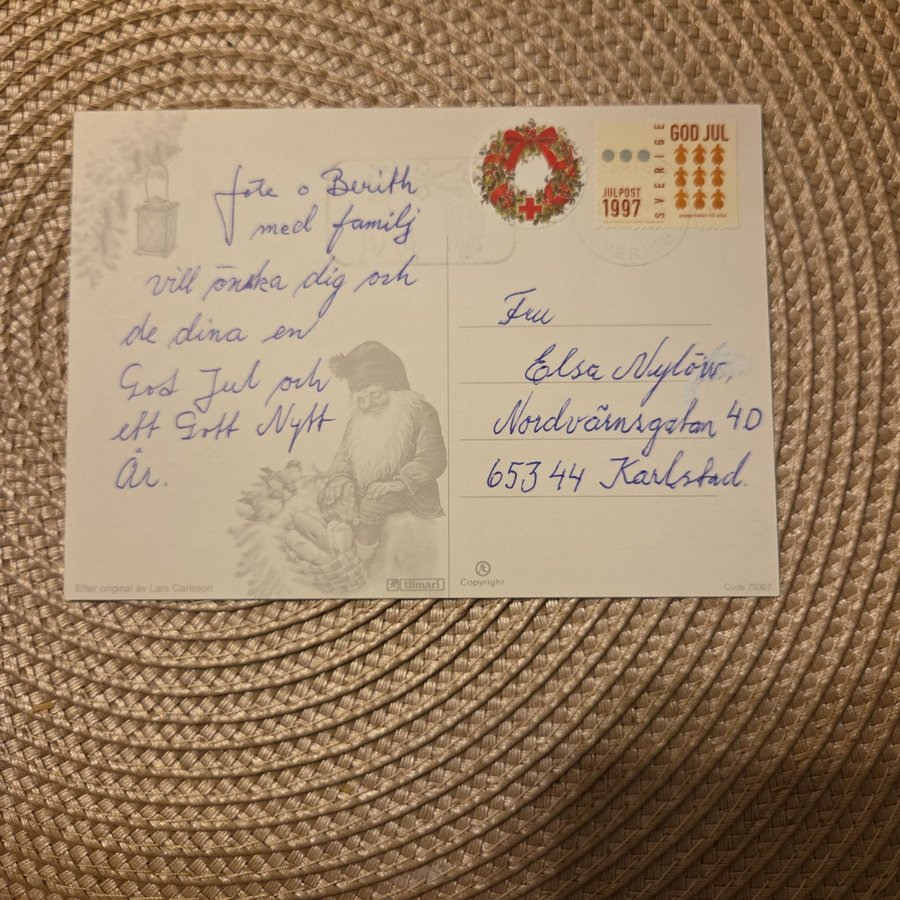 GOD JUL
SVERIGE
JULPOST
1997
pepparkakor till alla!
SVERIGE
Berith
med familj
vill önska dig och
de dina en
God Jul och
ett Gott Nytt
År.
Fru
Elsa Nylöw,
Nordvärnsgatan 4D
653 44 Karlstad.
Efter original av Lars Carlsson
tilmari
Copyright
Code 73307